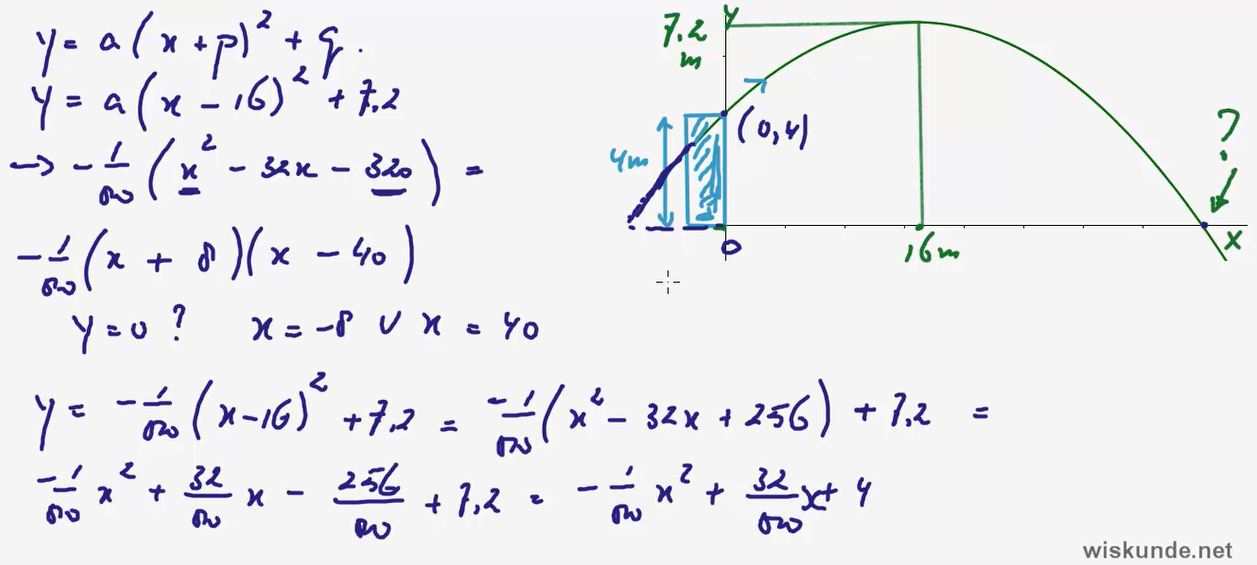 y = a(x + p)² + q.
y = a(x - 16)² + 7,2
→ -1/80 (x² - 32x - 320) =
-1/80 (x + 8)(x - 40)
y = 0 ? x = -8 ∨ x = 40
y = -1/80 (x - 16)² + 7,2 = -1/80 (x² - 32x + 256) + 7,2 =
-1/80 x² + 32/80 x - 256/80 + 7,2 = -1/80 x² + 32/80 x + 4
y
7.2
m
(0,4)
4m
?
0
16m
x
wiskunde.net